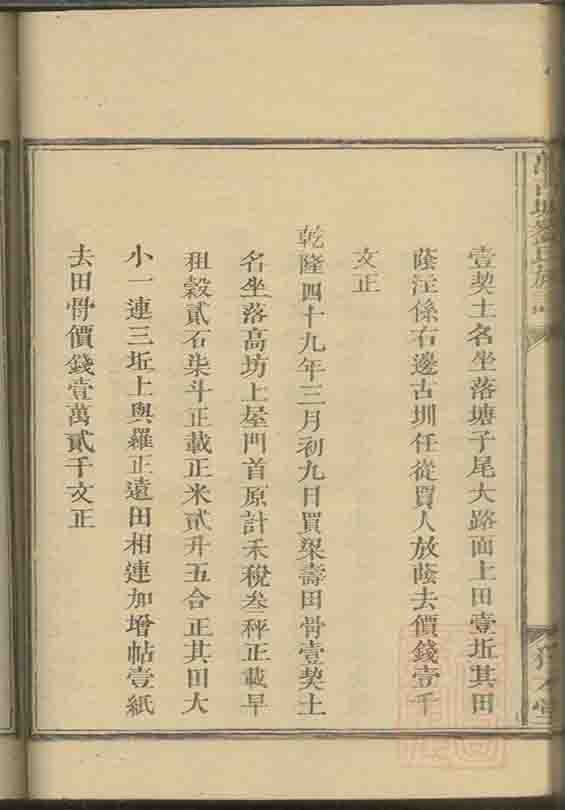 壹契土名坐落塘子尾大路面上田壹坵其田
蔭注係右邊古圳任從買人放蔭去價錢壹千
文正
乾隆四十九年三月初九日買梁壽田骨壹契土
名坐落高坊上屋門首原計禾稅叁秤正載早
租穀貳石柒斗正載正米貳升五合正其田大
小一連三坵上與羅正遠田相連加增帖壹紙
去田骨價錢壹萬貳千文正